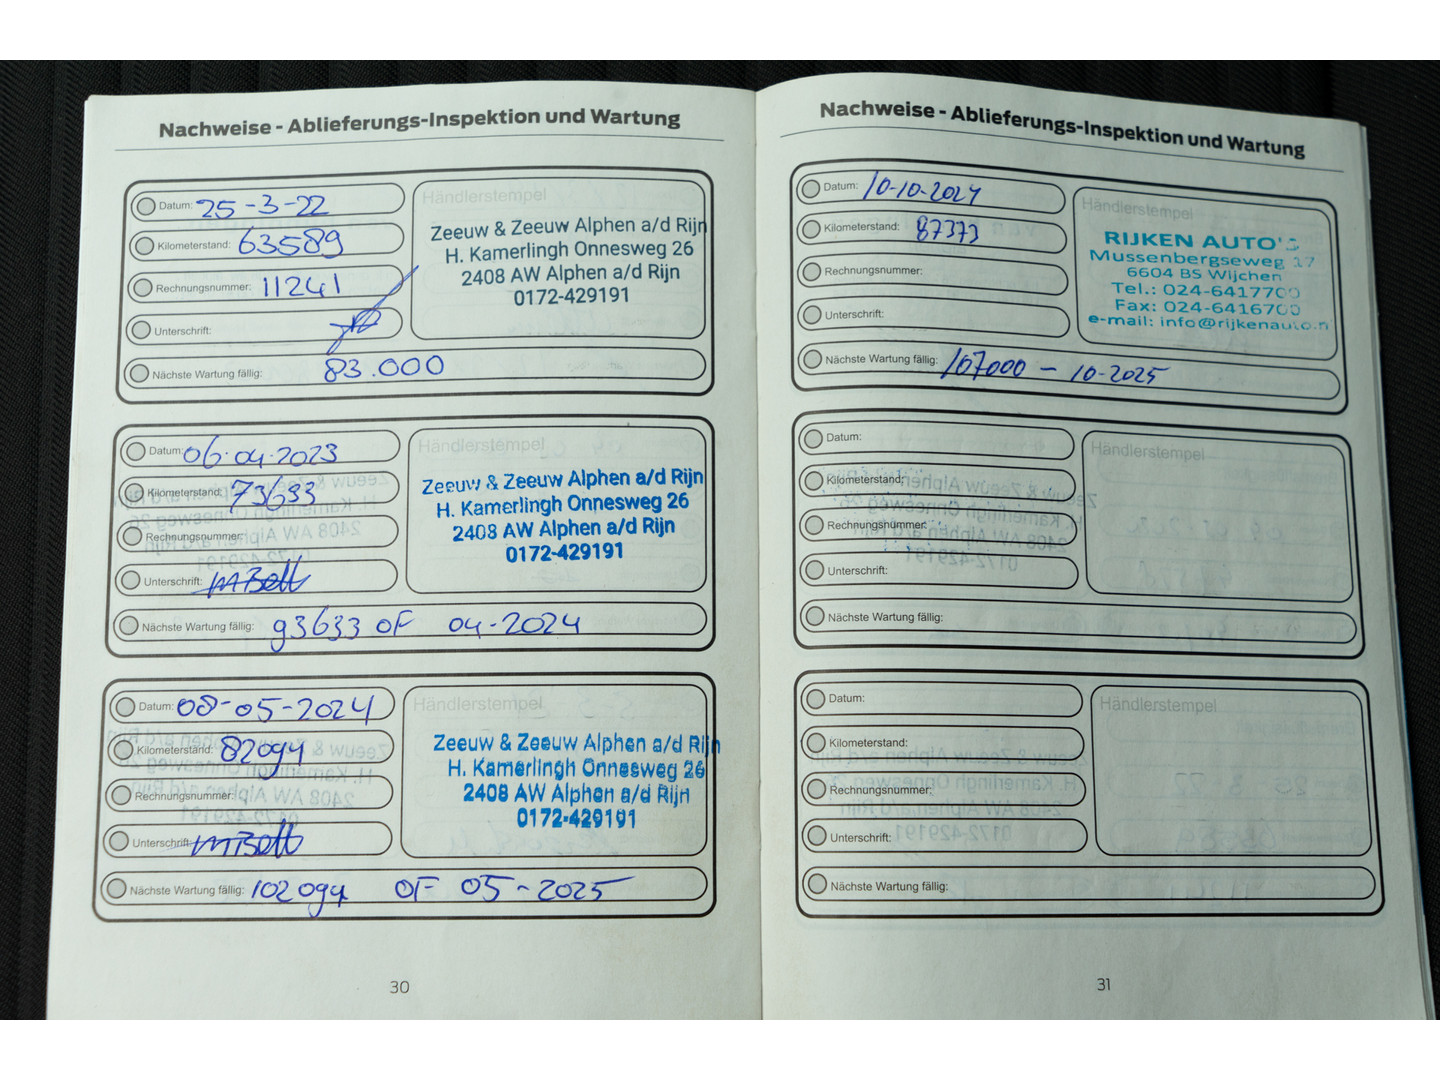 Nachweise - Ablieferungs-Inspektion und Wartung
Datum: 25-3-22
Kilometerstand: 63589
Rechnungsnummer: 11241
Unterschrift:
Nächste Wartung fällig: 83.000
Händlerstempel
Zeeuw & Zeeuw Alphen a/d Rijn
H. Kamerlingh Onnesweg 26
2408 AW Alphen a/d Rijn
0172-429191
Datum: 06-04-2023
Kilometerstand: 73633
Rechnungsnummer:
Unterschrift:
Nächste Wartung fällig: 93633 OF 04-2024
Händlerstempel
Zeeuw & Zeeuw Alphen a/d Rijn
H. Kamerlingh Onnesweg 26
2408 AW Alphen a/d Rijn
0172-429191
Datum: 08-05-2024
Kilometerstand: 82094
Rechnungsnummer:
Unterschrift:
Nächste Wartung fällig: 102094 OF 05-2025
Händlerstempel
Zeeuw & Zeeuw Alphen a/d Rijn
H. Kamerlingh Onnesweg 26
2408 AW Alphen a/d Rijn
0172-429191
30
Nachweise - Ablieferungs-Inspektion und Wartung
Datum: 10-10-2024
Kilometerstand: 87373
Rechnungsnummer:
Unterschrift:
Nächste Wartung fällig: 107000 - 10-2025
Händlerstempel
RIJKEN AUTO'S
Mussenbergseweg 17
6604 BS Wijchen
Tel.: 024-6417700
Fax: 024-6416700
e-mail: info@rijkenauto.n
Datum:
Kilometerstand:
Rechnungsnummer:
Unterschrift:
Nächste Wartung fällig:
Händlerstempel
Datum:
Kilometerstand:
Rechnungsnummer:
Unterschrift:
Nächste Wartung fällig:
Händlerstempel
31